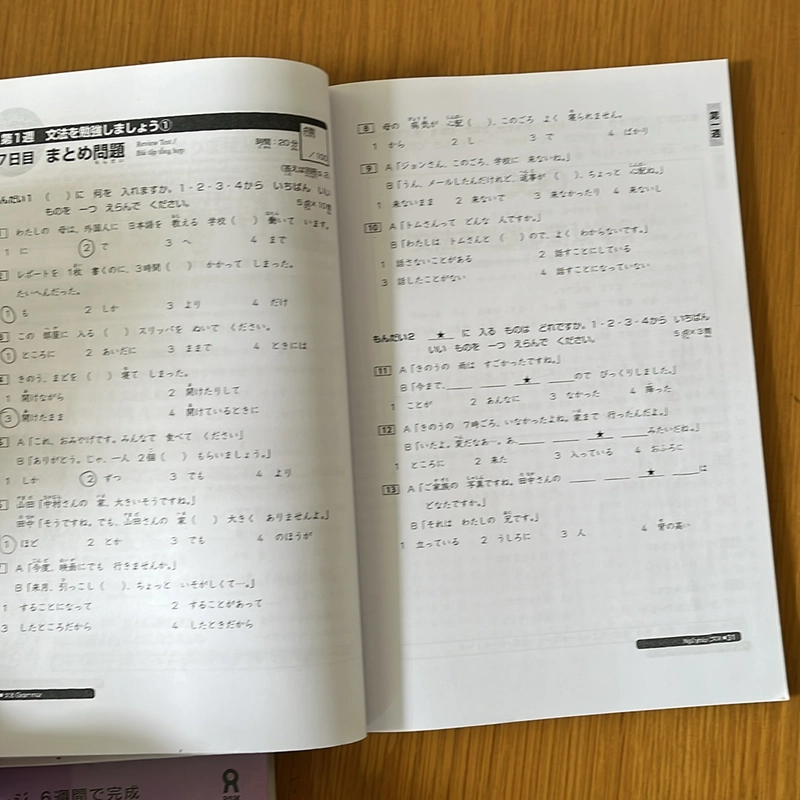 第1週 文法を勉強しましょう①
7日目 まとめ問題
Review Test /
Bài tập tổng hợp
時間:20分
点数
/100
んだい1 ( )に 何を 入れますか。1・2・3・4から いちばん いい
ものを 一つ えらんで ください。
5点×10問
わたしの 母は、外国人に 日本語を 教える 学校( )働いて います。
1 に 2 で 3 へ 4 まで
レポートを 1枚 書くのに、3時間( ) かかって しまった。
たいへんだった。
1 も 2 しか 3 より 4 だけ
この 部屋に 入る( )スリッパを ぬいで ください。
1 ところに 2 あいだに 3 までで 4 ときには
きのう、まどを( )寝て しまった。
1 開けながら 2 開けたりして
3 開けたまま 4 開けているときに
A「これ、おみやげです。みんなで 食べて ください」
B「ありがとう。じゃ、一人 2個( ) もらいましょう。」
1 しか 2 ずつ 3 でも 4 より
山田「中村さんの 家、大きいそうですね。」
田中「そうですね。でも、山田さんの 家( )大きく ありませんよ。」
1 ほど 2 とか 3 でも 4 のほうが
A「今度、映画にでも 行きませんか。」
B「来月、引っこし( )、ちょっと いそがしくて…。」
1 することになって 2 することがあって
3 したところだから 4 したときだから
第一週
8 母の 病気が 心配( )、このごろ よく 寝られません。
1 から 2 し 3 で 4 ばかり
9 A「ジョンさん、このごろ、学校に 来ないね。」
B「うん、メールしたんだけれど、返事が( )、ちょっと 心配ね。」
1 来ないまま 2 来ないで 3 来なかったり 4 来ないし
10 A「トムさんって どんな 人ですか。」
B「わたしは トムさんと( )ので、よく わからないです。」
1 話さないことがある 2 話すことにしている
3 話したことがない 4 話すことになっていない
もんだい2 ★ に 入る ものは どれですか。1・2・3・4から いちばん
いい ものを 一つ えらんで ください。
5点×3問
11 A「きのうの 雨は すごかったですね。」
B「今まで、____ ____ ★ ____ので びっくりしました。」
1 ことが 2 あんなに 3 なかった 4 降った
12 A「きのうの 7時ごろ、いなかったよね。家まで 行ったんだよ。」
B「いたよ。変だなあ…。あ、____ ____ ★ ____みたいだね。」
1 ところに 2 来た 3 入っている 4 おふろに
13 A「ご家族の 写真ですね。田中さんの ____ ____ ★ ____は
どなたですか。」
B「それは わたしの 兄です。」
1 立っている 2 うしろに 3 人 4 背の高い
31
6週間で完成